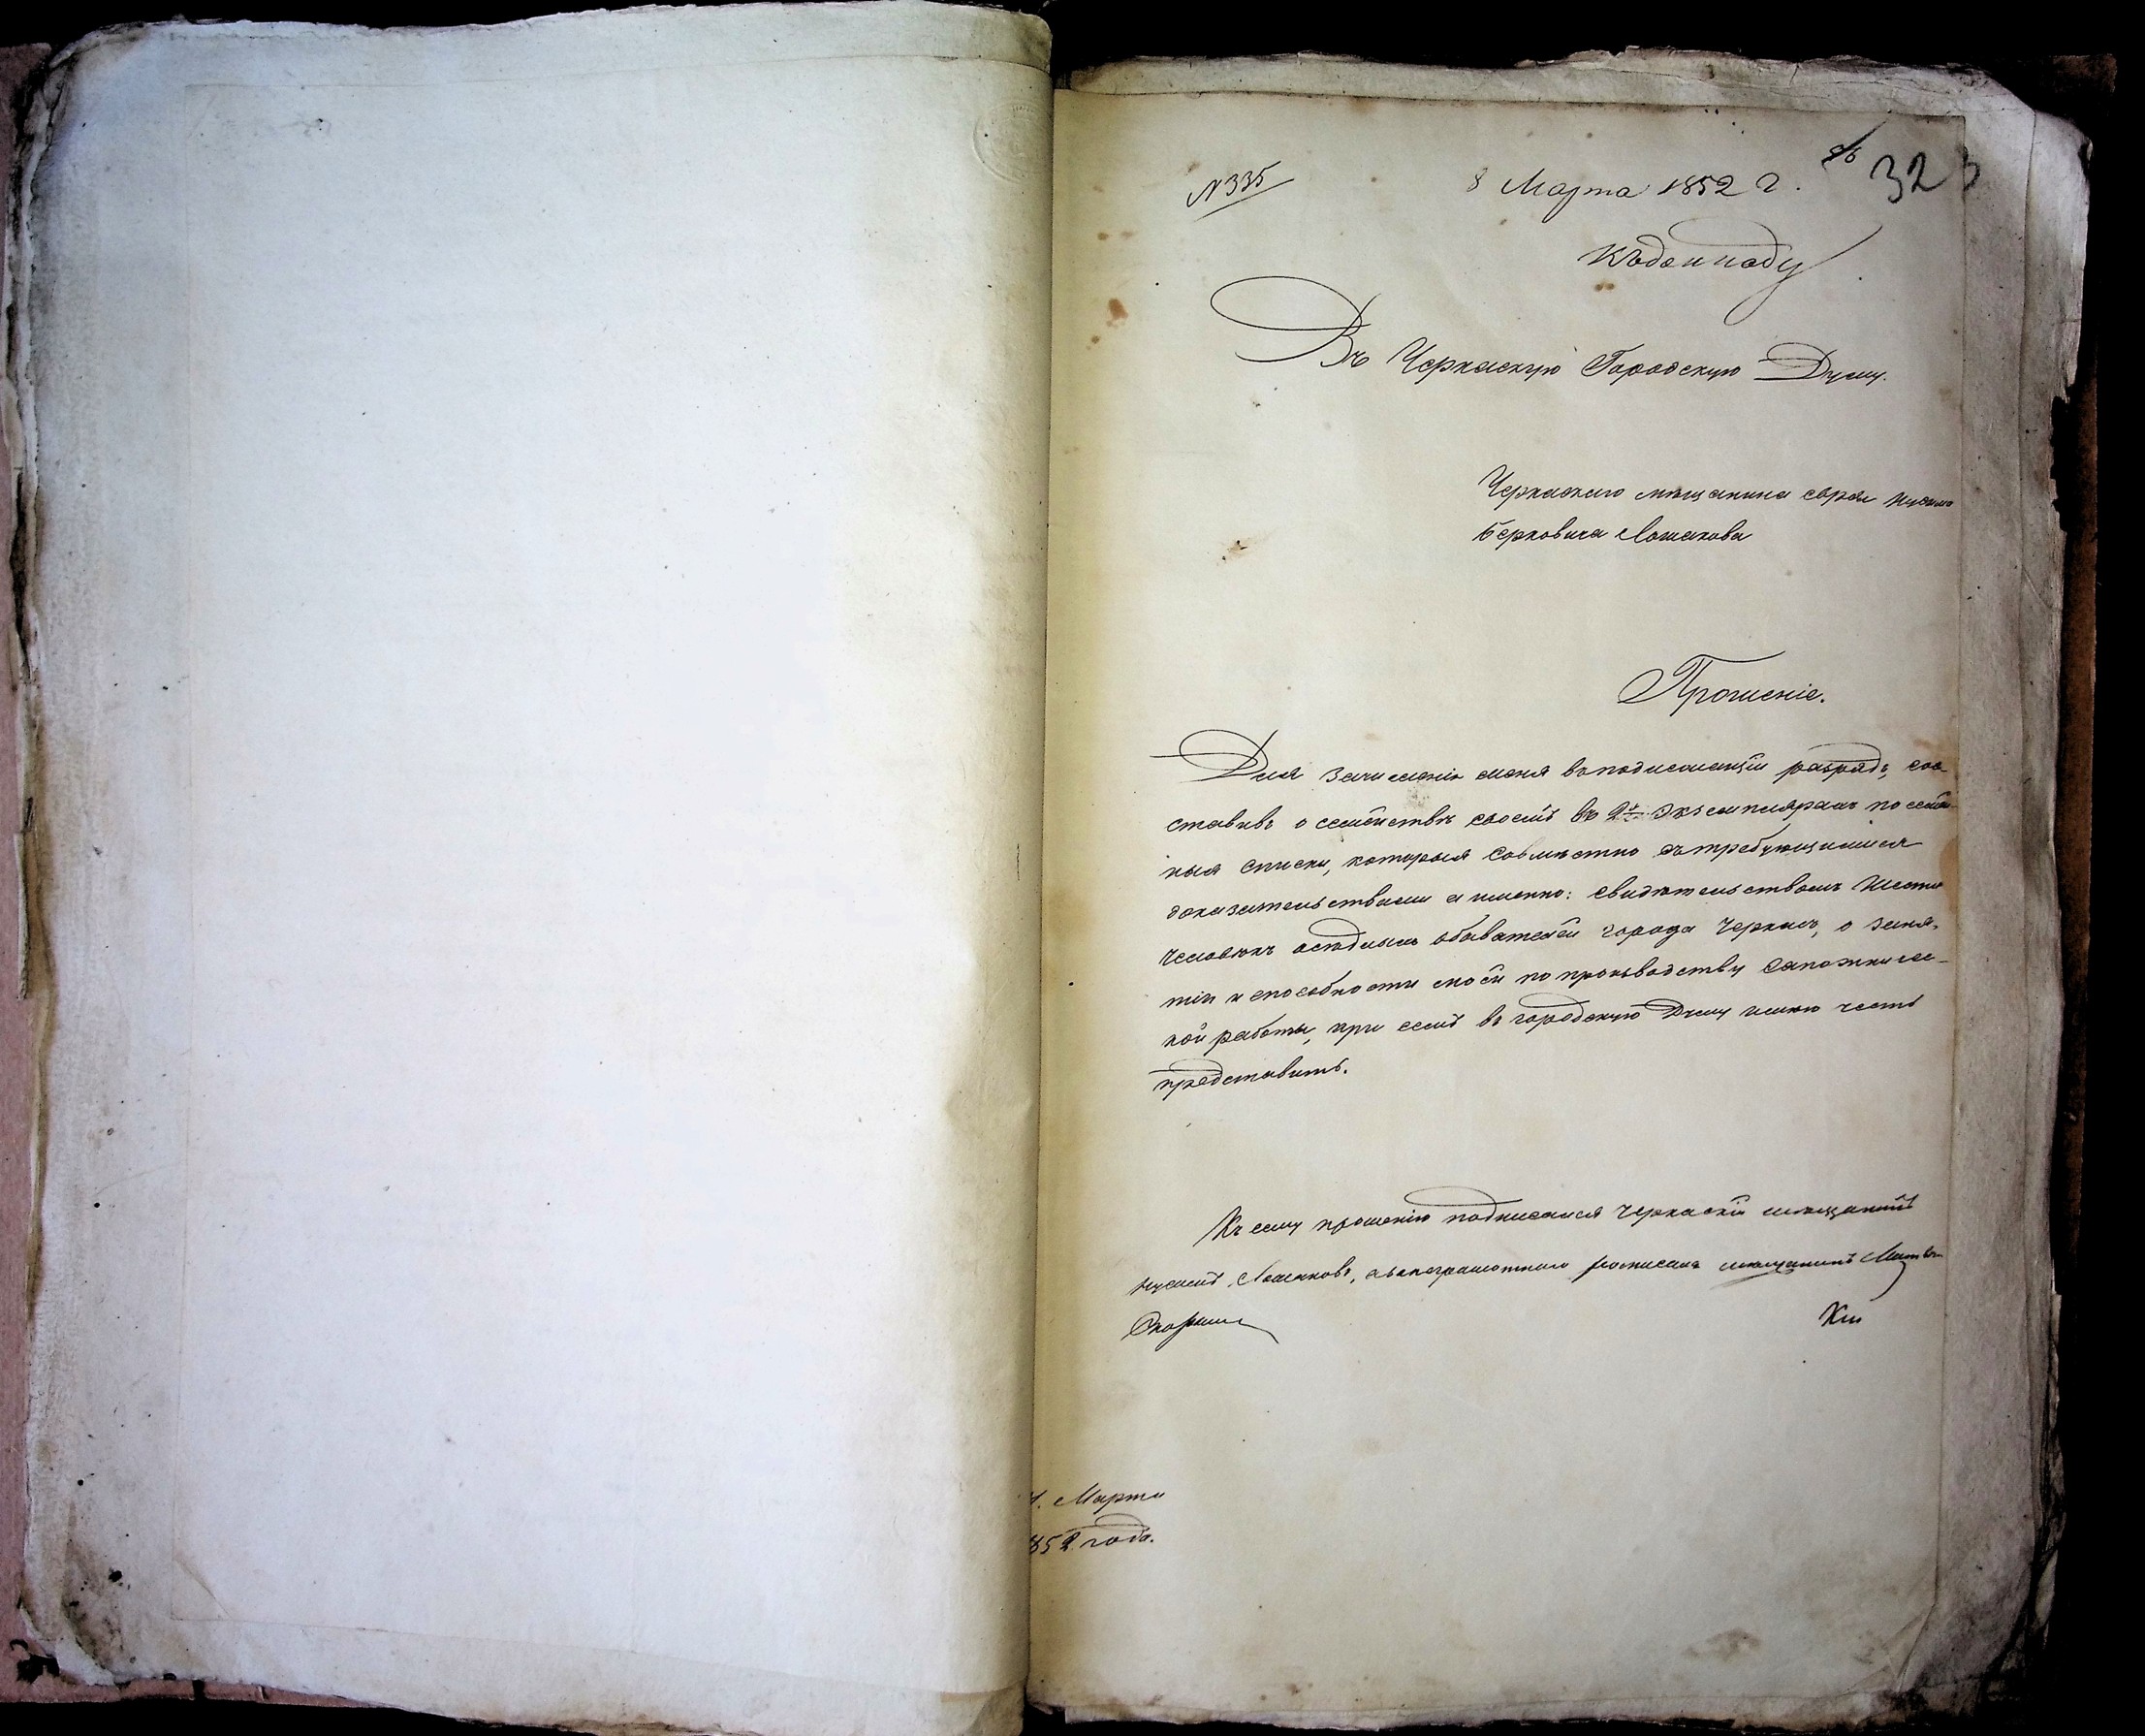 N 335
8 Марта 1852 г.
323
Къ докладу
Въ Черкаскую Городскую Думу.
Черкаскаго мѣщанина еврея Нусима
Берковича Лошакова
Прошеніе.
Для зачисленія меня въ подлежащій разрядъ, со-
ставивъ о семействѣ своемъ въ 2хъ экземплярахъ посемей-
ныя списки, которыя совмѣстно съ требующимися
доказательствами а именно: свидѣтельствомъ Шести
человѣкъ осѣдлыхъ обывателей города Черкасъ, о заня-
тіи и способности моей по производству сапожничес-
кой работы, при семъ въ городскую Думу имѣю честь
представить.
Къ сему прошенію подписался Черкаскій мѣщанинъ
Нусимъ Лошаковъ, а за неграмотнаго росписался мѣщанинъ
Марта
852 года.